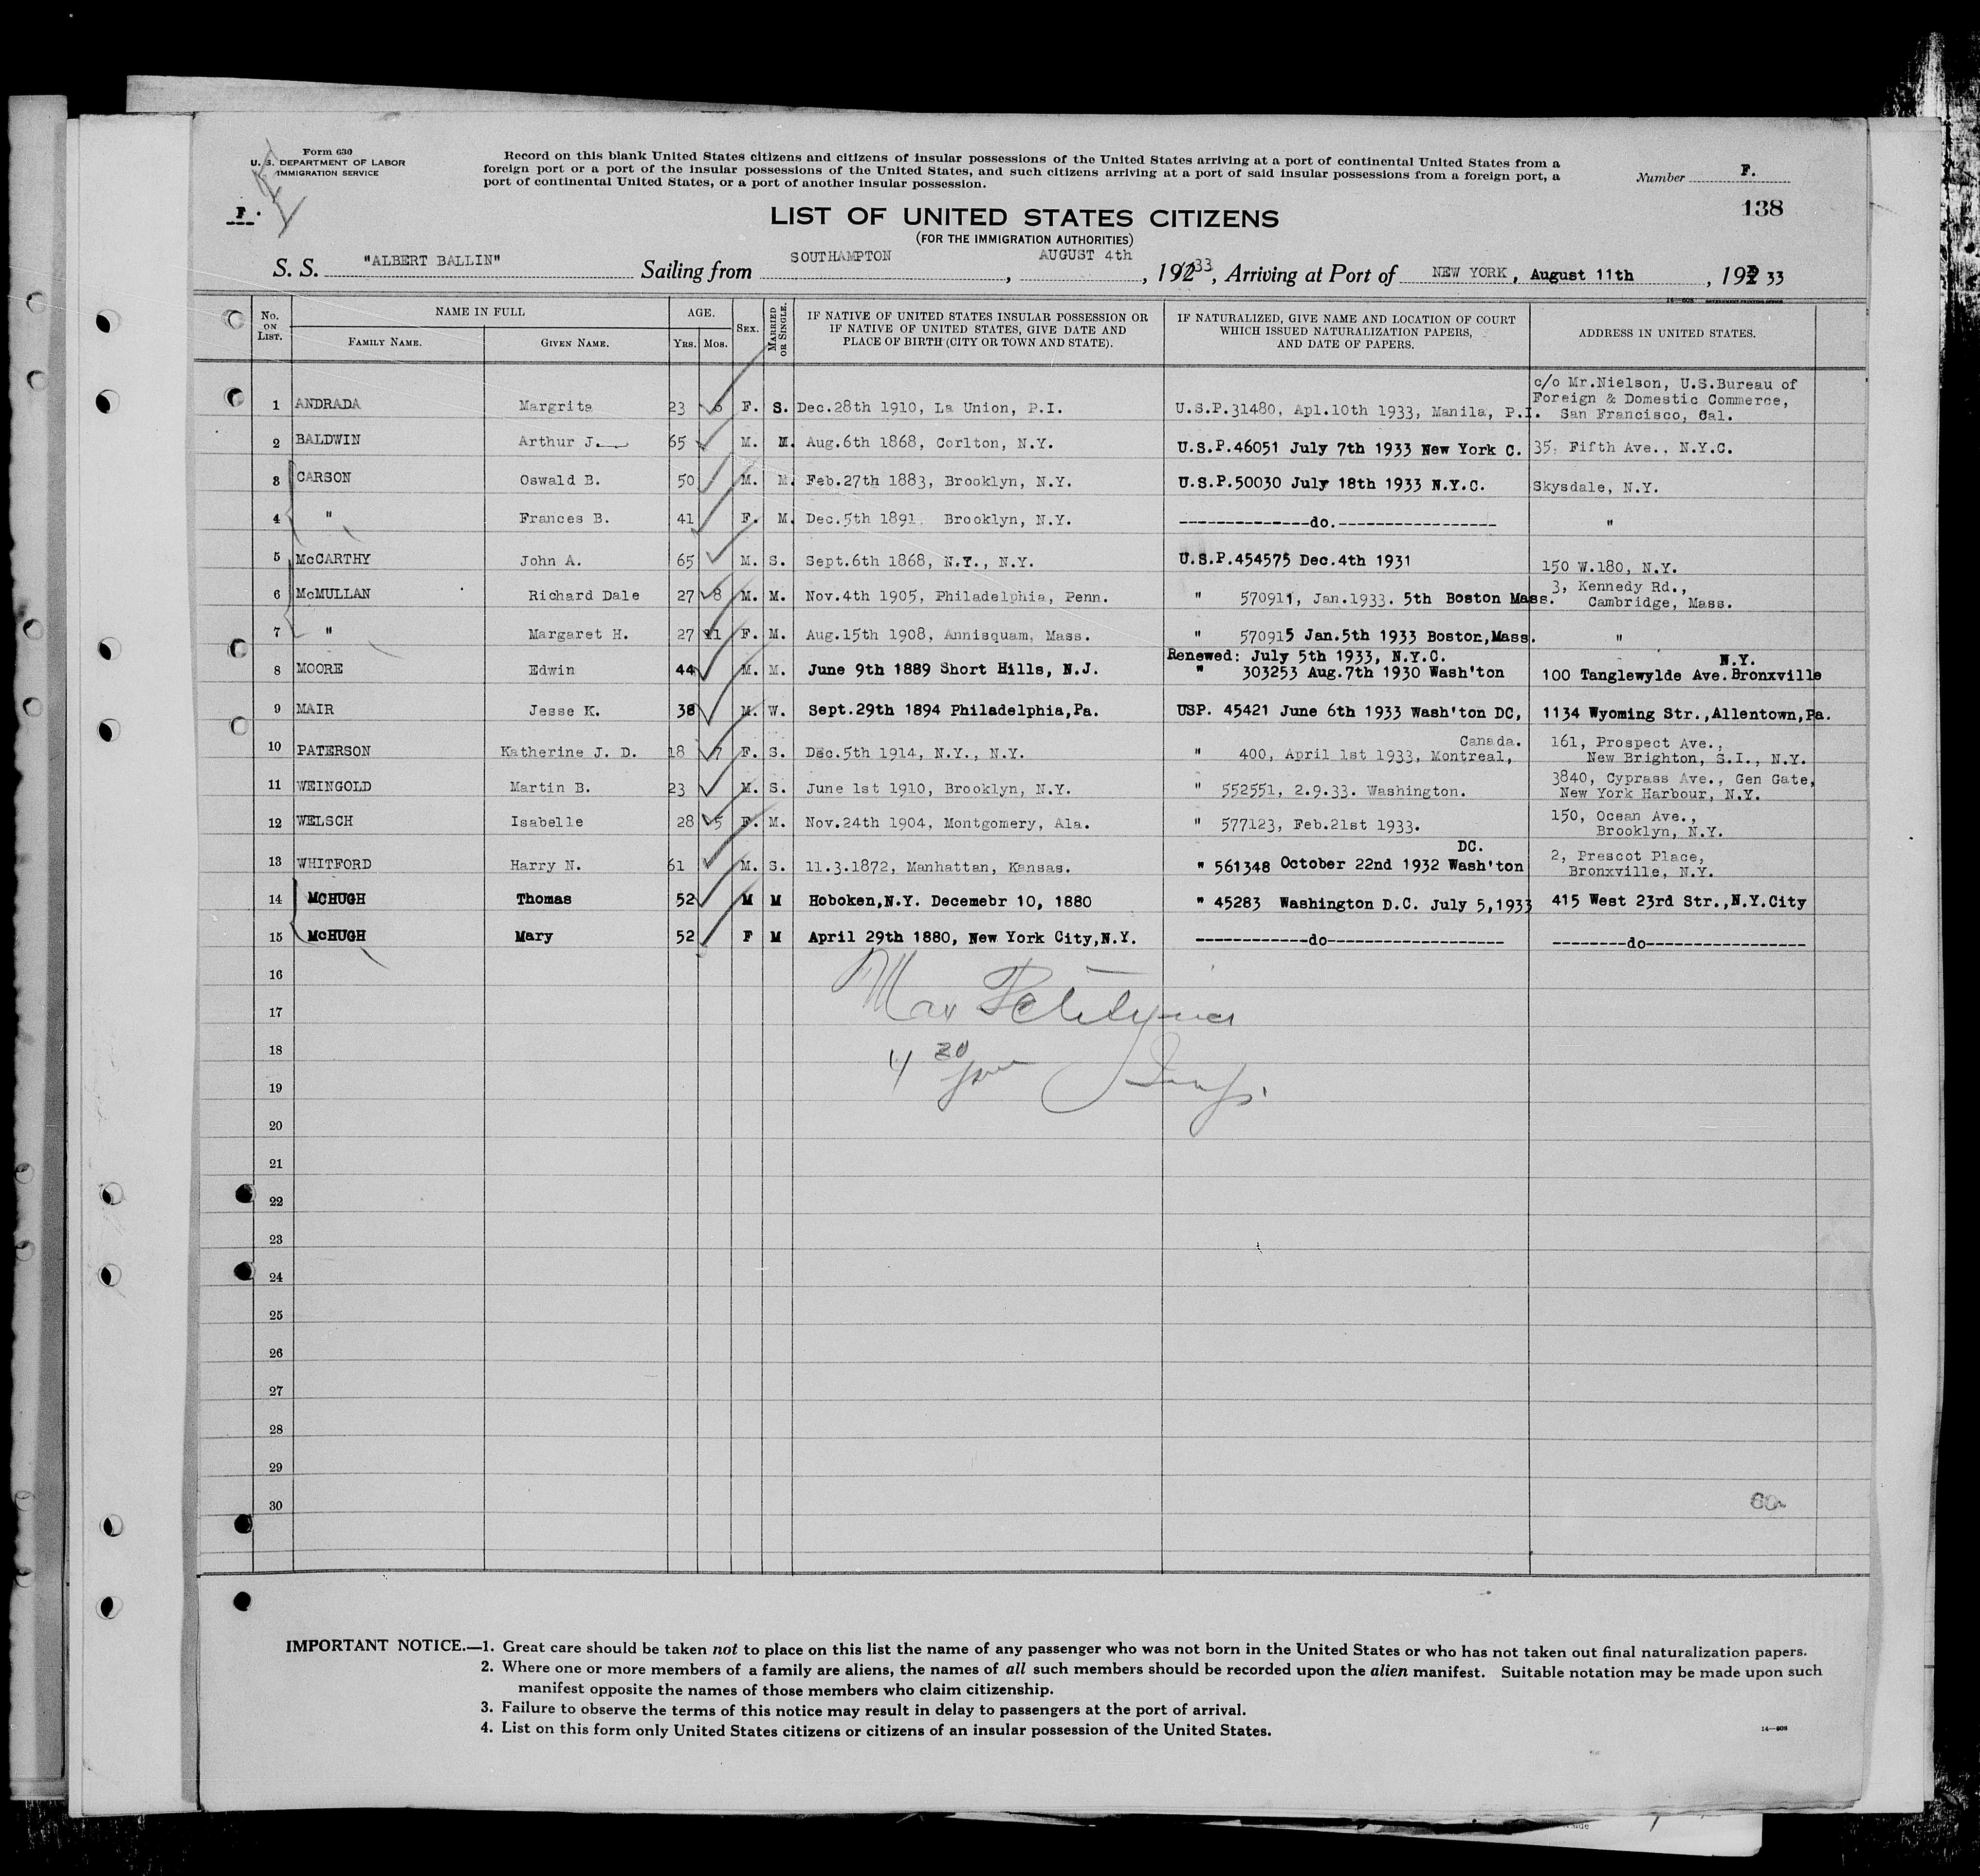 Form 630
U. S. DEPARTMENT OF LABOR
IMMIGRATION SERVICE
Record on this blank United States citizens and citizens of insular possessions of the United States arriving at a port of continental United States from a
foreign port or a port of the insular possessions of the United States, and such citizens arriving at a port of said insular possessions from a foreign port, a
port of continental United States, or a port of another insular possession.
Number F.
138
F.
LIST OF UNITED STATES CITIZENS
(FOR THE IMMIGRATION AUTHORITIES)
S. S. "ALBERT BALLIN" Sailing from SOUTHAMPTON, AUGUST 4th, 192 33, Arriving at Port of NEW YORK, August 11th, 192 33
No. ON LIST. NAME IN FULL FAMILY NAME. GIVEN NAME. AGE. YRS. MOS. SEX. MARRIED OR SINGLE. IF NATIVE OF UNITED STATES INSULAR POSSESSION OR IF NATIVE OF UNITED STATES, GIVE DATE AND PLACE OF BIRTH (CITY OR TOWN AND STATE). IF NATURALIZED, GIVE NAME AND LOCATION OF COURT WHICH ISSUED NATURALIZATION PAPERS, AND DATE OF PAPERS. ADDRESS IN UNITED STATES.
c/o Mr.Nielson, U.S.Bureau of
Foreign & Domestic Commerce,
1 ANDRADA Margrita 23 6 F. S. Dec.28th 1910, La Union, P.I. U.S.P.31480, Apl.10th 1933, Manila, P.I. San Francisco, Cal.
2 BALDWIN Arthur J. 65 M. M. Aug.6th 1868, Corlton, N.Y. U.S.P.46051 July 7th 1933 New York C. 35, Fifth Ave., N.Y.C.
3 CARSON Oswald B. 50 M. M. Feb.27th 1883, Brooklyn, N.Y. U.S.P.50030 July 18th 1933 N.Y.C. Skysdale, N.Y.
4 " Frances B. 41 F. M. Dec.5th 1891. Brooklyn, N.Y. --------------do.----------------- "
5 McCARTHY John A. 65 M. S. Sept.6th 1868, N.Y., N.Y. U.S.P.454575 Dec.4th 1931 150 W.180, N.Y.
6 McMULLAN Richard Dale 27 8 M. M. Nov.4th 1905, Philadelphia, Penn. " 570911, Jan.1933. 5th Boston Mass. 3, Kennedy Rd.,
Cambridge, Mass.
7 " Margaret H. 27 11 F. M. Aug.15th 1908, Annisquam, Mass. " 570915 Jan.5th 1933 Boston,Mass. "
Renewed: July 5th 1933, N.Y.C. N.Y.
8 MOORE Edwin 44 M. M. June 9th 1889 Short Hills, N.J. " 303253 Aug.7th 1930 Wash'ton 100 Tanglewylde Ave.Bronxville
9 MAIR Jesse K. 38 M. W. Sept.29th 1894 Philadelphia,Pa. USP. 45421 June 6th 1933 Wash'ton DC, 1134 Wyoming Str.,Allentown,Pa.
Canada. 161, Prospect Ave.,
10 PATERSON Katherine J. D. 18 7 F. S. Dec.5th 1914, N.Y., N.Y. " 400, April 1st 1933, Montreal, New Brighton, S.I., N.Y.
3840, Cyprass Ave., Gen Gate,
11 WEINGOLD Martin B. 23 M. S. June 1st 1910, Brooklyn, N.Y. " 552551, 2.9.33. Washington. New York Harbour, N.Y.
12 WELSCH Isabelle 28 5 F. M. Nov.24th 1904, Montgomery, Ala. " 577123, Feb.21st 1933. 150, Ocean Ave.,
Brooklyn, N.Y.
DC. 2, Prescot Place,
13 WHITFORD Harry N. 61 M. S. 11.3.1872, Manhattan, Kansas. " 561348 October 22nd 1932 Wash'ton Bronxville, N.Y.
14 MCHUGH Thomas 52 M M Hoboken,N.Y. Decemebr 10, 1880 " 45283 Washington D.C. July 5,1933 415 West 23rd Str.,N.Y.City
15 McHUGH Mary 52 F M April 29th 1880, New York City,N.Y. ------------do------------------- --------do-----------------
16
17 Max
18 4 30
19
20
21
22
23
24
25
26
27
28
29
30
IMPORTANT NOTICE.—1. Great care should be taken not to place on this list the name of any passenger who was not born in the United States or who has not taken out final naturalization papers.
2. Where one or more members of a family are aliens, the names of all such members should be recorded upon the alien manifest. Suitable notation may be made upon such
manifest opposite the names of those members who claim citizenship.
3. Failure to observe the terms of this notice may result in delay to passengers at the port of arrival.
4. List on this form only United States citizens or citizens of an insular possession of the United States.
14—608